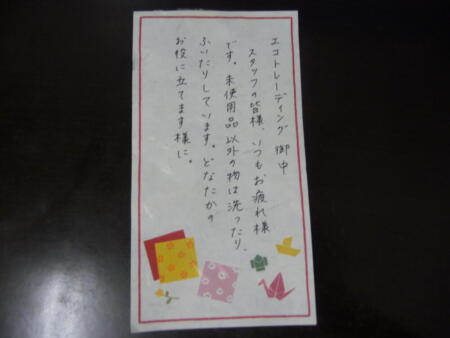 エコトレーディング 御中
スタッフの皆様、いつもお疲れ様
です。未使用品以外の物は洗ったり、
ふいたりしています。どなたかの
お役に立てます様に。